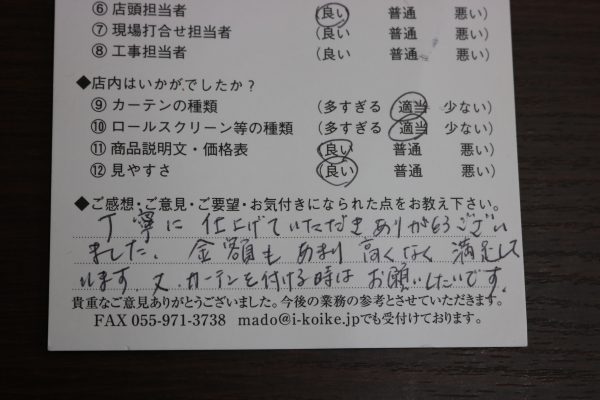 ⑥ 店頭担当者 (良い 普通 悪い)
⑦ 現場打合せ担当者 (良い 普通 悪い)
⑧ 工事担当者 (良い 普通 悪い)
◆店内はいかがでしたか?
⑨ カーテンの種類 (多すぎる 適当 少ない)
⑩ ロールスクリーン等の種類 (多すぎる 適当 少ない)
⑪ 商品説明文・価格表 (良い 普通 悪い)
⑫ 見やすさ (良い 普通 悪い)
◆ご感想・ご意見・ご要望・お気付きになられた点をお教え下さい。
丁寧に仕上げていただきありがとうござい
ました。金額もあまり高くなく満足して
います。又、カーテンを付ける時はお願いしたいです。
貴重なご意見ありがとうございました。今後の業務の参考とさせていただきます。
FAX 055-971-3738 mado@i-koike.jpでも受付けております。